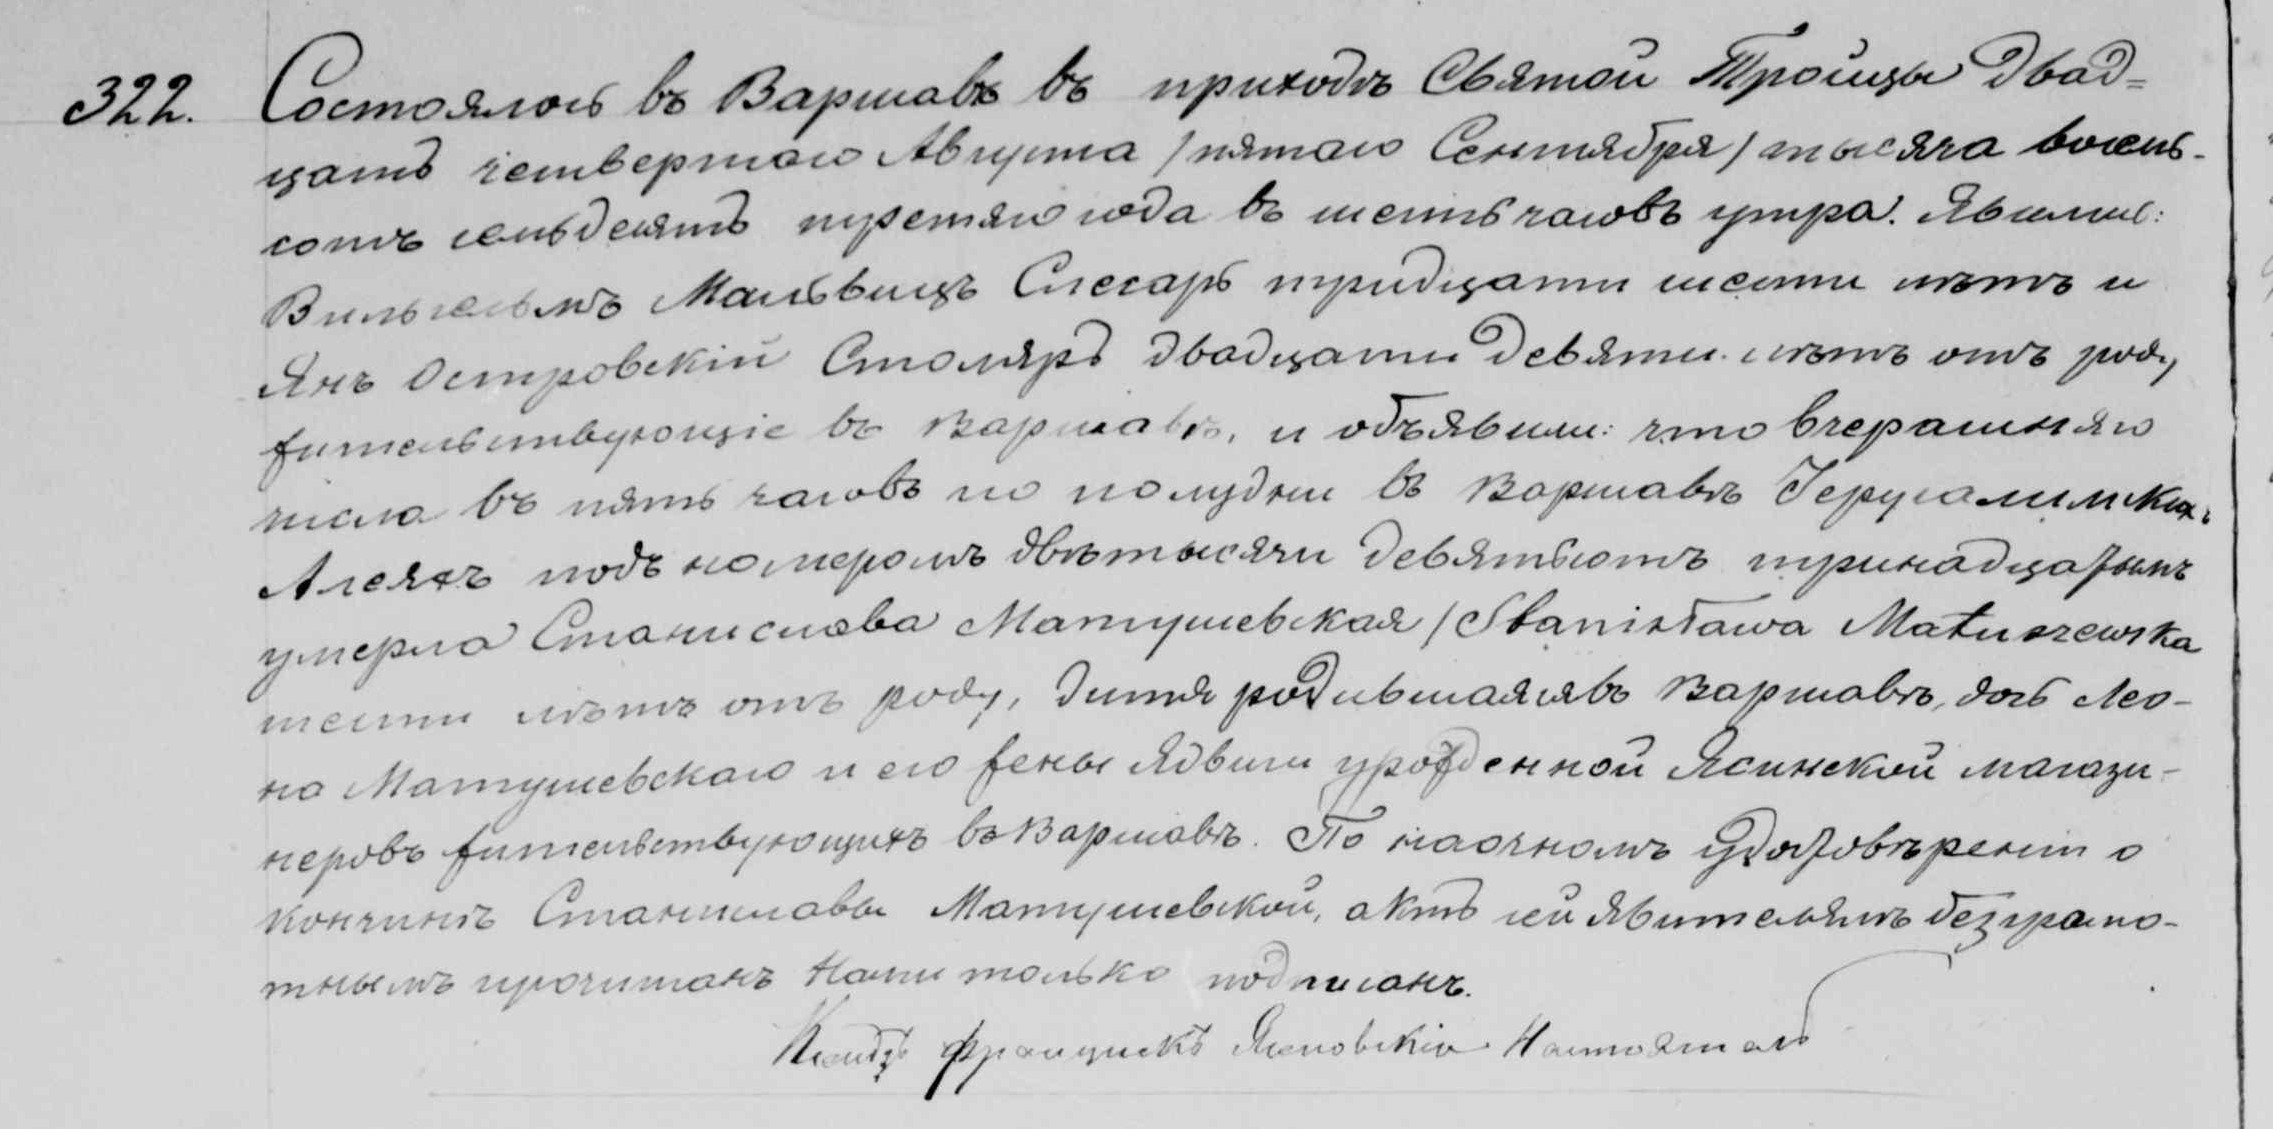 322. Состоялось въ Варшавѣ въ приходѣ Святой Троицы двад=
цать четвертаго Августа /пятаго Сентября/ тысяча восемь-
сотъ семьдесятъ третьяго года въ шесть часовъ утра. Явились:
Вильгельмъ Мальвицъ Слесарь тридцати шести лѣтъ и
Янъ Островскій Столяръ двадцати девяти лѣтъ отъ роду,
жительствующіе въ Варшавѣ, и объявили: что вчерашняго
числа въ пять часовъ по полудни въ Варшавѣ Іерусалимскихъ
Алеяхъ подъ номеромъ двѣ тысячи девятьсотъ тринадцатымъ
умерла Станислава Матушевская /Stanisława Matuszewska
шести лѣтъ отъ роду, дитя родившаяся въ Варшавѣ, дочь Лео-
на Матушевскаго и его жены Ядвиги урожденной Ясинской магази-
неровъ жительствующихъ въ Варшавѣ. По наочномъ удостовѣреніи о
кончинѣ Станиславы Матушевской, актъ сей явителямъ безграмо-
тнымъ прочитанъ Нами только подписанъ.
Ксендзъ Францискъ Настоятель